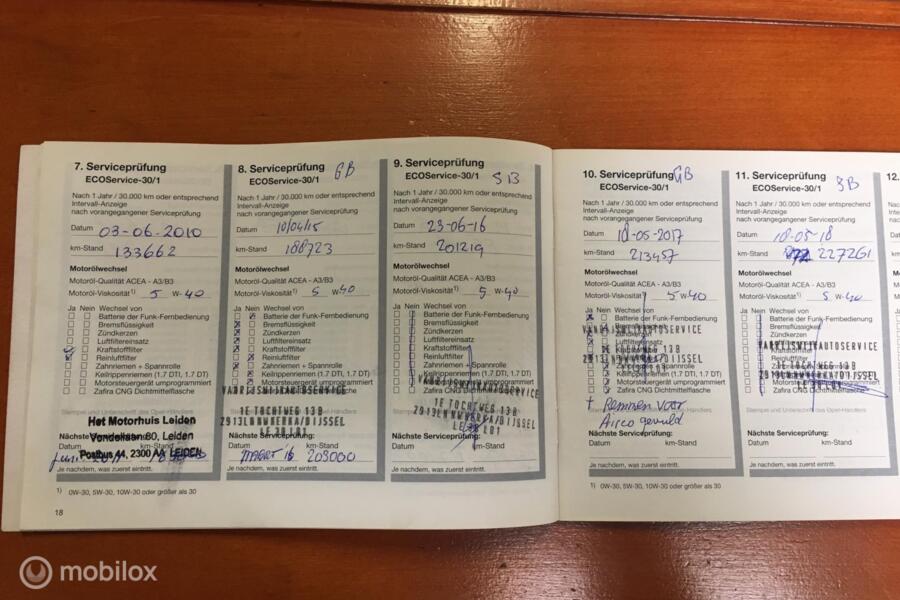 7. Serviceprüfung
ECOService-30/1
Nach 1 Jahr / 30.000 km oder entsprechend
Intervall-Anzeige
nach vorangegangener Serviceprüfung
Datum 03-06-2010
km-Stand 133662
Motorölwechsel
Motoröl-Qualität ACEA - A3/B3
Motoröl-Viskosität1) 5 W-40
Ja Nein Wechsel von
Batterie der Funk-Fernbedienung
Bremsflüssigkeit
Zündkerzen
Luftfiltereinsatz
Kraftstofffilter
Reinluftfilter
Zahnriemen + Spannrolle
Keilrippenriemen (1.7 DTI, 1.7 DT)
Motorsteuergerät umprogrammiert
Zafira CNG Dichtmittelflasche
Stempel und Unterschrift des Opel-Händlers
Het Motorhuis Leiden
Vondellaan 80, Leiden
Postbus 44, 2300 AA LEIDEN
Nächste Serviceprüfung:
Datum km-Stand
Je nachdem, was zuerst eintritt.
8. Serviceprüfung GB
ECOService-30/1
Nach 1 Jahr / 30.000 km oder entsprechend
Intervall-Anzeige
nach vorangegangener Serviceprüfung
Datum 10/04/15
km-Stand 188723
Motorölwechsel
Motoröl-Qualität ACEA - A3/B3
Motoröl-Viskosität1) 5 W-40
Ja Nein Wechsel von
Batterie der Funk-Fernbedienung
Bremsflüssigkeit
Zündkerzen
Luftfiltereinsatz
Kraftstofffilter
Reinluftfilter
Zahnriemen + Spannrolle
Keilrippenriemen (1.7 DTI, 1.7 DT)
Motorsteuergerät umprogrammiert
Zafira CNG Dichtmittelflasche
1E TOCHTWEG 13B
Nächste Serviceprüfung:
Datum km-Stand
maart '16 203000
Je nachdem, was zuerst eintritt.
9. Serviceprüfung
ECOService-30/1 SB
Nach 1 Jahr / 30.000 km oder entsprechend
Intervall-Anzeige
nach vorangegangener Serviceprüfung
Datum 23-06-16
km-Stand 201219
Motorölwechsel
Motoröl-Qualität ACEA - A3/B3
Motoröl-Viskosität1) 5 W-40
Ja Nein Wechsel von
Batterie der Funk-Fernbedienung
Bremsflüssigkeit
Zündkerzen
Luftfiltereinsatz
Kraftstofffilter
Reinluftfilter
Zahnriemen + Spannrolle
Keilrippenriemen (1.7 DTI, 1.7 DT)
Motorsteuergerät umprogrammiert
Zafira CNG Dichtmittelflasche
1E TOCHTWEG 13B
Nächste Serviceprüfung:
Datum km-Stand
Je nachdem, was zuerst eintritt.
1) 0W-30, 5W-30, 10W-30 oder größer als 30
18
10. Serviceprüfung GB
ECOService-30/1
Nach 1 Jahr / 30.000 km oder entsprechend
Intervall-Anzeige
nach vorangegangener Serviceprüfung
Datum 18-05-2017
km-Stand 213457
Motorölwechsel
Motoröl-Qualität ACEA - A3/B3
Motoröl-Viskosität1) 5 W-40
Ja Nein Wechsel von
Batterie der Funk-Fernbedienung
Keilrippenriemen (1.7 DTI, 1.7 DT)
Motorsteuergerät umprogrammiert
Zafira CNG Dichtmittelflasche
+ Remmen voor
Airco gevuld
Nächste Serviceprüfung:
Datum km-Stand
Je nachdem, was zuerst eintritt.
11. Serviceprüfung
ECOService-30/1 SB
Nach 1 Jahr / 30.000 km oder entsprechend
Intervall-Anzeige
nach vorangegangener Serviceprüfung
Datum 18-05-18
km-Stand 227261
Motorölwechsel
Motoröl-Qualität ACEA - A3/B3
Motoröl-Viskosität1) 5 W-40
Ja Nein Wechsel von
Batterie der Funk-Fernbedienung
Bremsflüssigkeit
Zündkerzen
Nächste Serviceprüfung:
Datum km-Stand
Je nachdem, was zuerst eintritt.
12.
1) 0W-30, 5W-30, 10W-30 oder größer als 30
mobilox